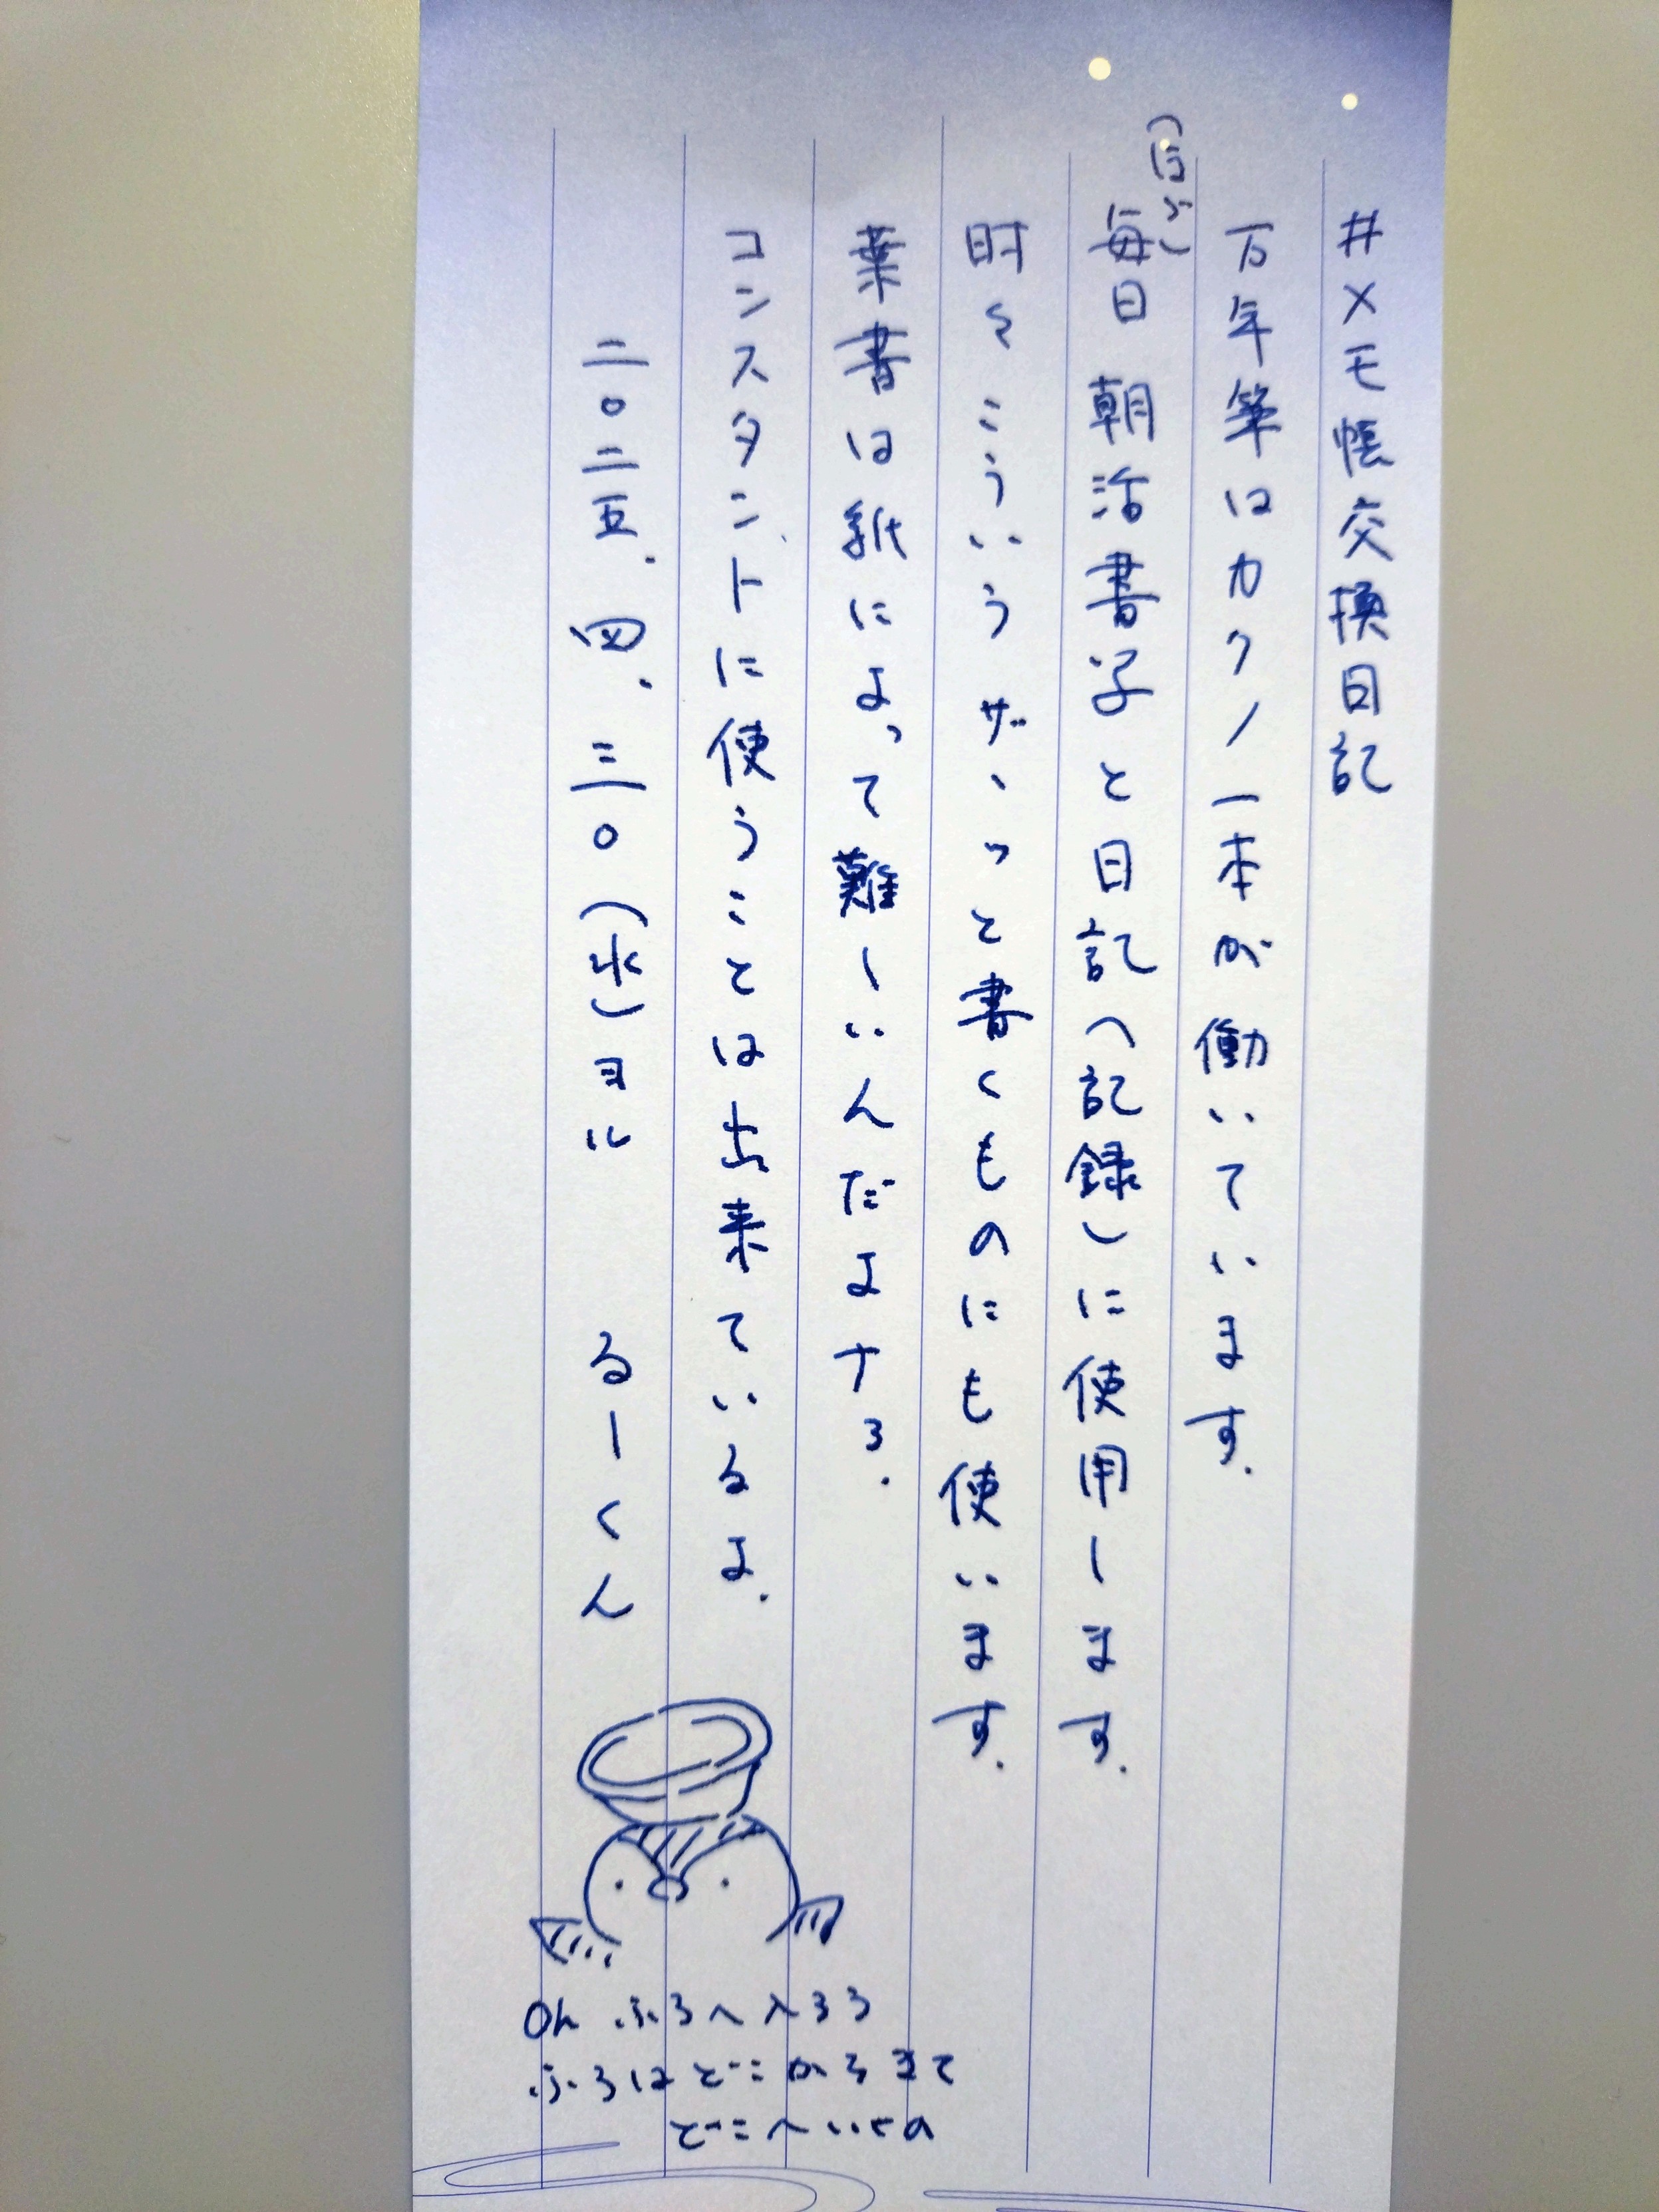 #メモ帳交換日記
万年筆はカクノ一本が働いています.
(ほぼ)
毎日 朝活書写と日記(記録)に使用します.
時々こういう ザヽっと書くものにも使います.
葉書は紙によって難しいんだよナろ.
コンスタントに使うことは出来ているよ.
二〇二五.四.三〇(水)ヨル るーくん
Oh ふろへ入ろう
ふろはどこからきて
どこへいくの